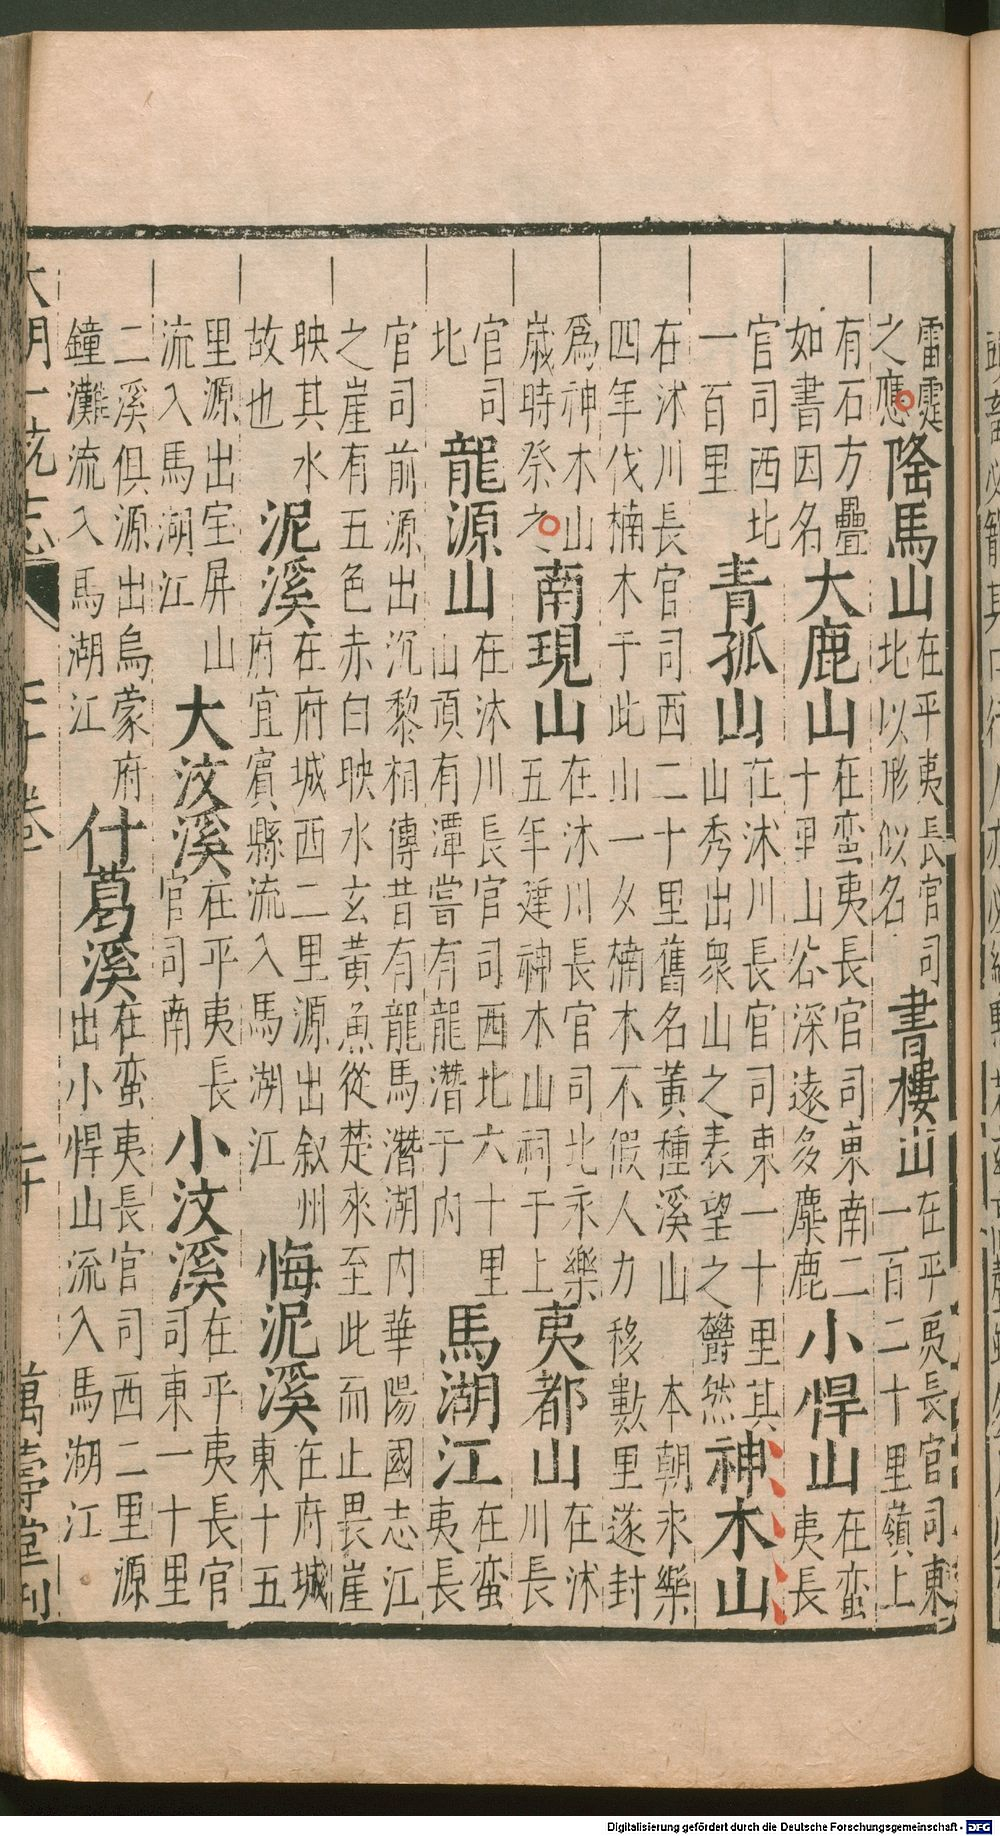 雷霆之應 隆馬山 在平夷長官司北以形似名 書樓山 在平夷長官司東一百二十里嶺上
有石方疊如書因名 大鹿山 在蛮夷長官司東南二十里山谷深遠多麋鹿 小悍山 在蛮夷長
官司西北一百里 青孤山 在沐川長官司東一十里其山秀出衆山之表望之欝然 神木山
在沐川長官司西二十里舊名黃種溪山 本朝永樂四年伐楠木于此山一夂楠木不假人力移數里遂封
爲神木山歲時祭之 南現山 在沐川長官司北永樂五年建神木山祠于上 夷都山 在沐川長
官司北 龍源山 在沐川長官司西北六十里山頂有潭嘗有龍潛于内 馬湖江 在蛮夷長
官司前源出沉黎相傳昔有龍馬潛湖内華陽國志江之崖有五色赤白映水玄黃魚從楚來至此而止畏崖
映其水故也 泥溪 在府城西二里源出叙州府宜賓縣流入馬湖江 悔泥溪 在府城東十五
里源出宝屏山流入馬湖江 大汶溪 在平夷長官司南 小汶溪 在平夷長官司東一十里
二溪俱源出烏蒙府鐘灘流入馬湖江 什葛溪 在蛮夷長官司西二里源出小悍山流入馬湖江
大明一統志 卷 萬壽堂刊
Digitalisierung gefördert durch die Deutsche Forschungsgemeinschaft - DFG